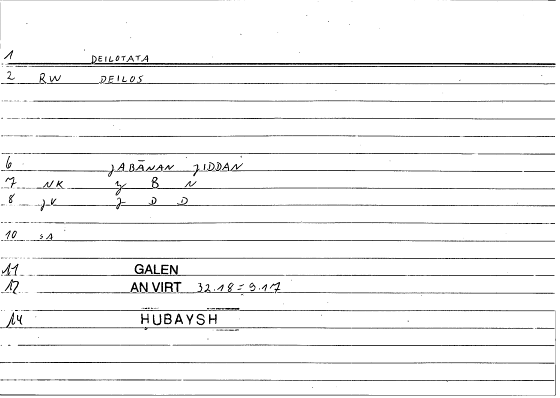 1 DEILOTATA
2 RW DEILOS
6 JABĀNAN JIDDAN
7 NK J B N
8 JV J D D
10 SA
11 GALEN
12 AN VIRT 32.18 = 9.17
14 HUBAYSH